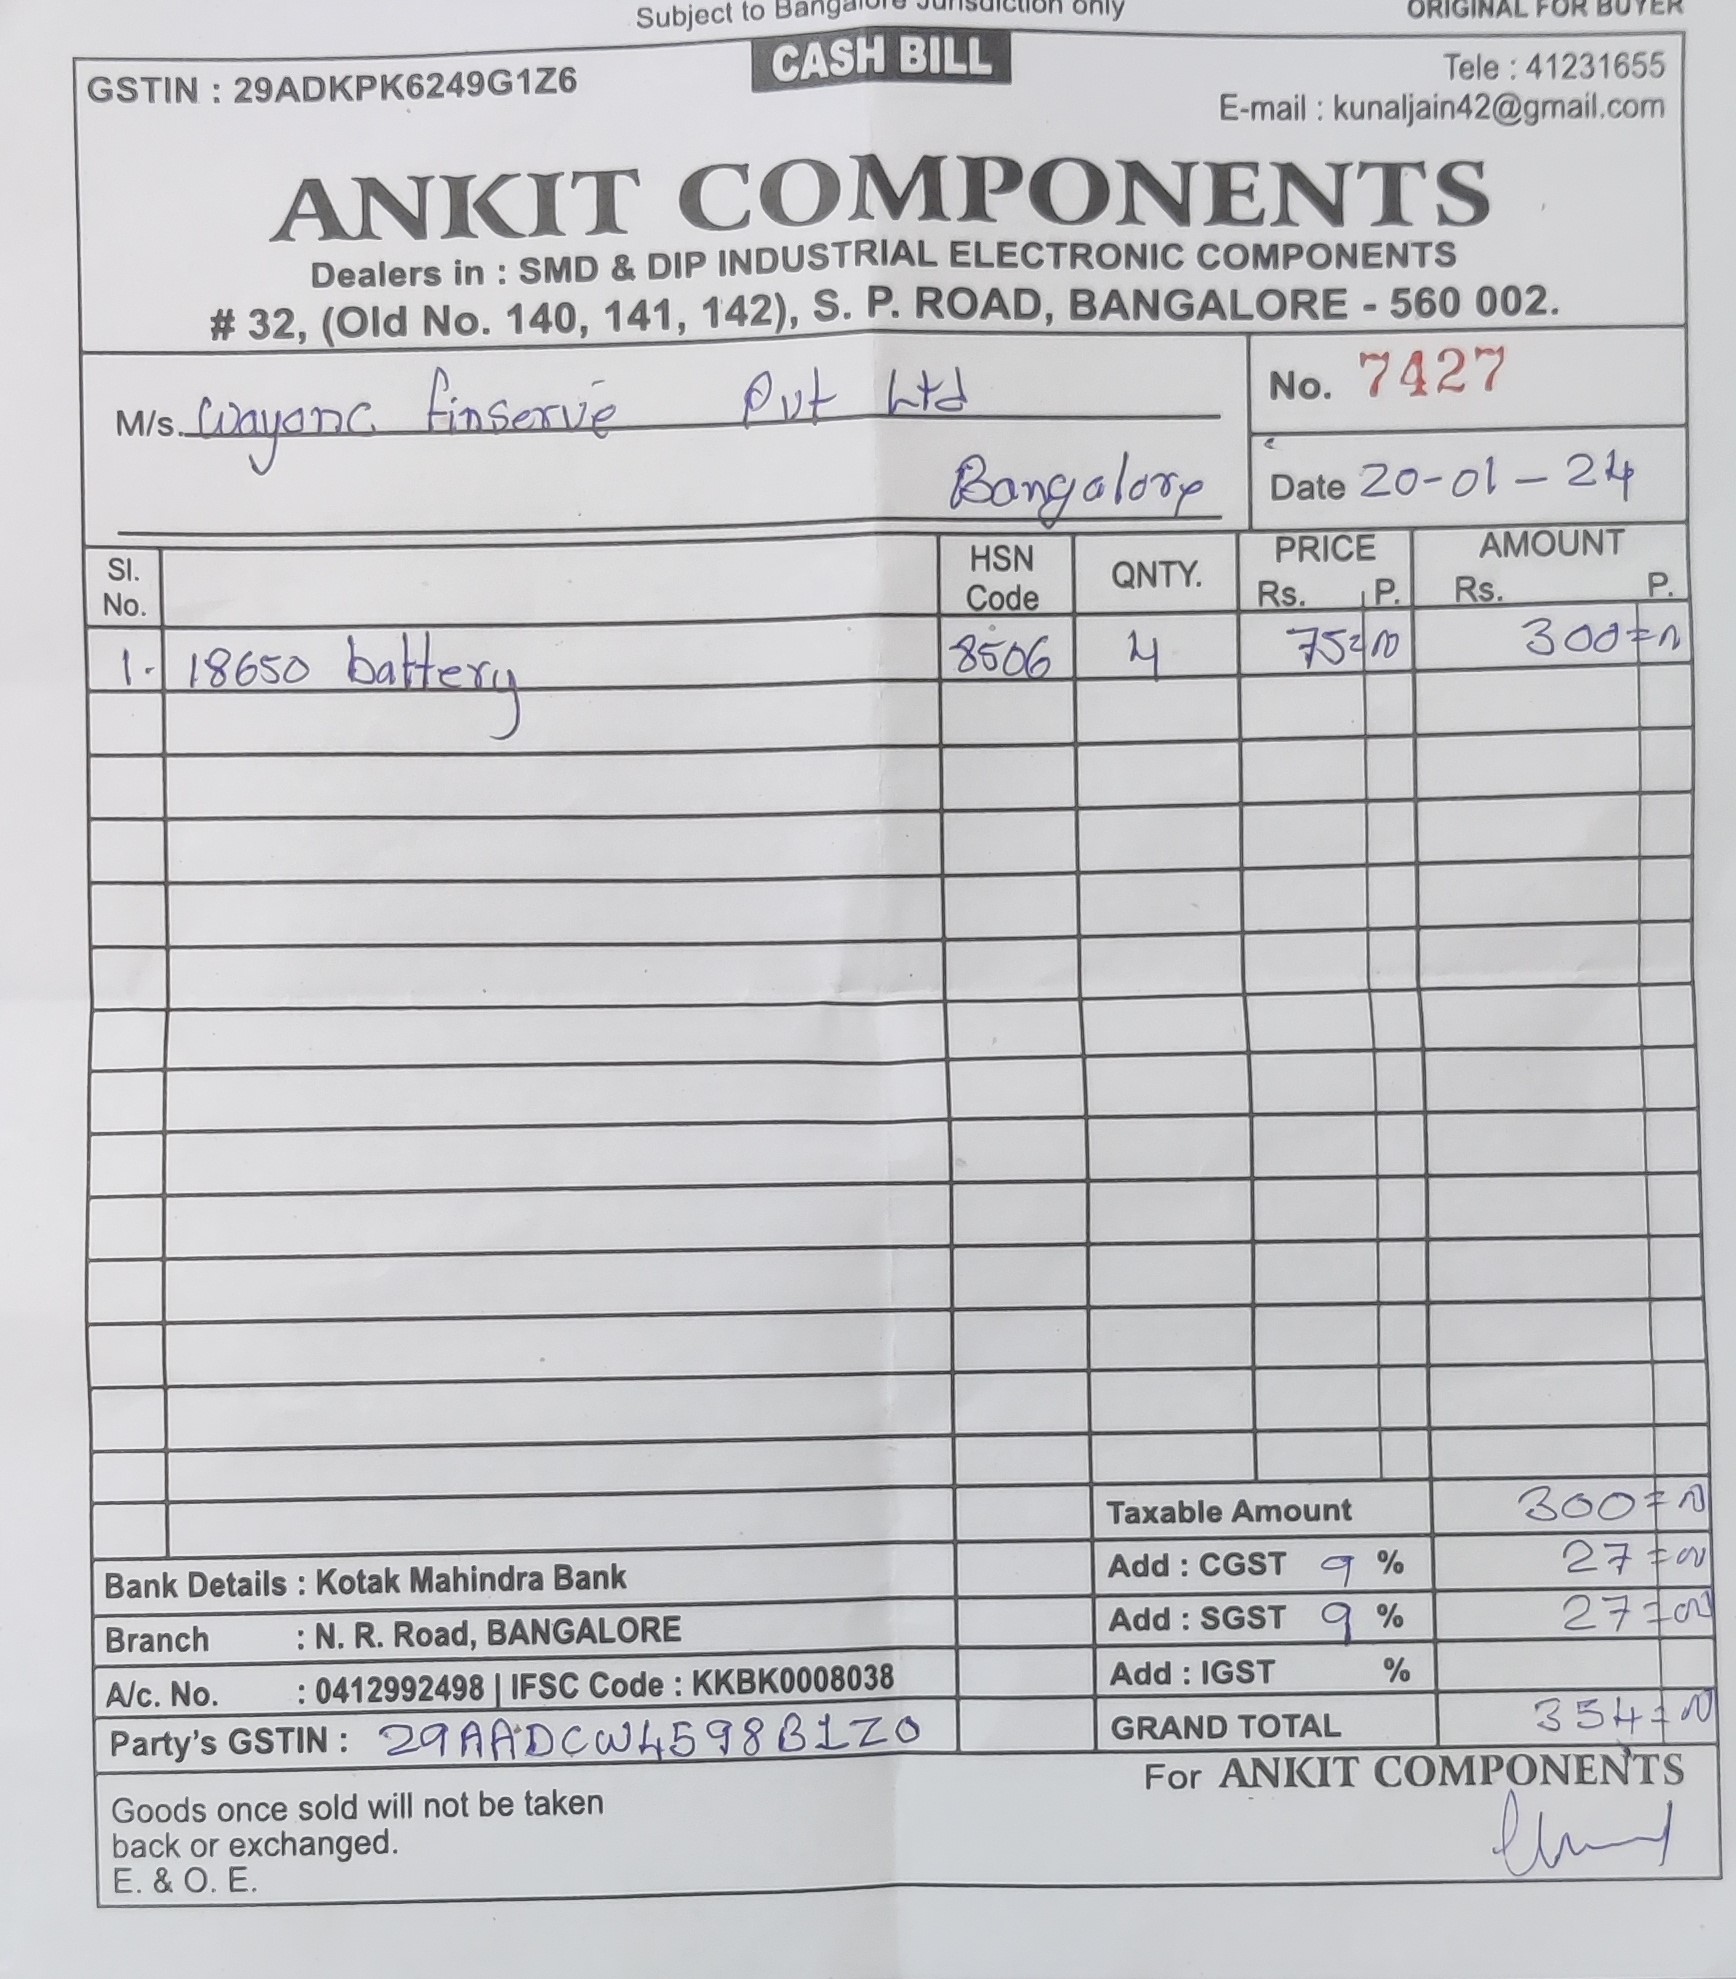 Subject to Bangalore Jurisdiction only
ORIGINAL FOR BUYER
CASH BILL
GSTIN : 29ADKPK6249G1Z6
Tele : 41231655
E-mail : kunaljain42@gmail.com
ANKIT COMPONENTS
Dealers in : SMD & DIP INDUSTRIAL ELECTRONIC COMPONENTS
# 32, (Old No. 140, 141, 142), S. P. ROAD, BANGALORE - 560 002.
M/s. finserve Pvt Ltd
Bangalore
No. 7427
Date 20-01-24
Sl. No. HSN Code QNTY. PRICE Rs. P. AMOUNT Rs. P.
1. 18650 battery 8506 4 75 300
Taxable Amount 300
Add : CGST 9 % 27
Add : SGST 9 % 27
Add : IGST %
GRAND TOTAL 354
Bank Details : Kotak Mahindra Bank
Branch : N. R. Road, BANGALORE
A/c. No. : 0412992498 | IFSC Code : KKBK0008038
Party's GSTIN : 29AADCW4598B1ZO
For ANKIT COMPONENTS
Goods once sold will not be taken
back or exchanged.
E. & O. E.